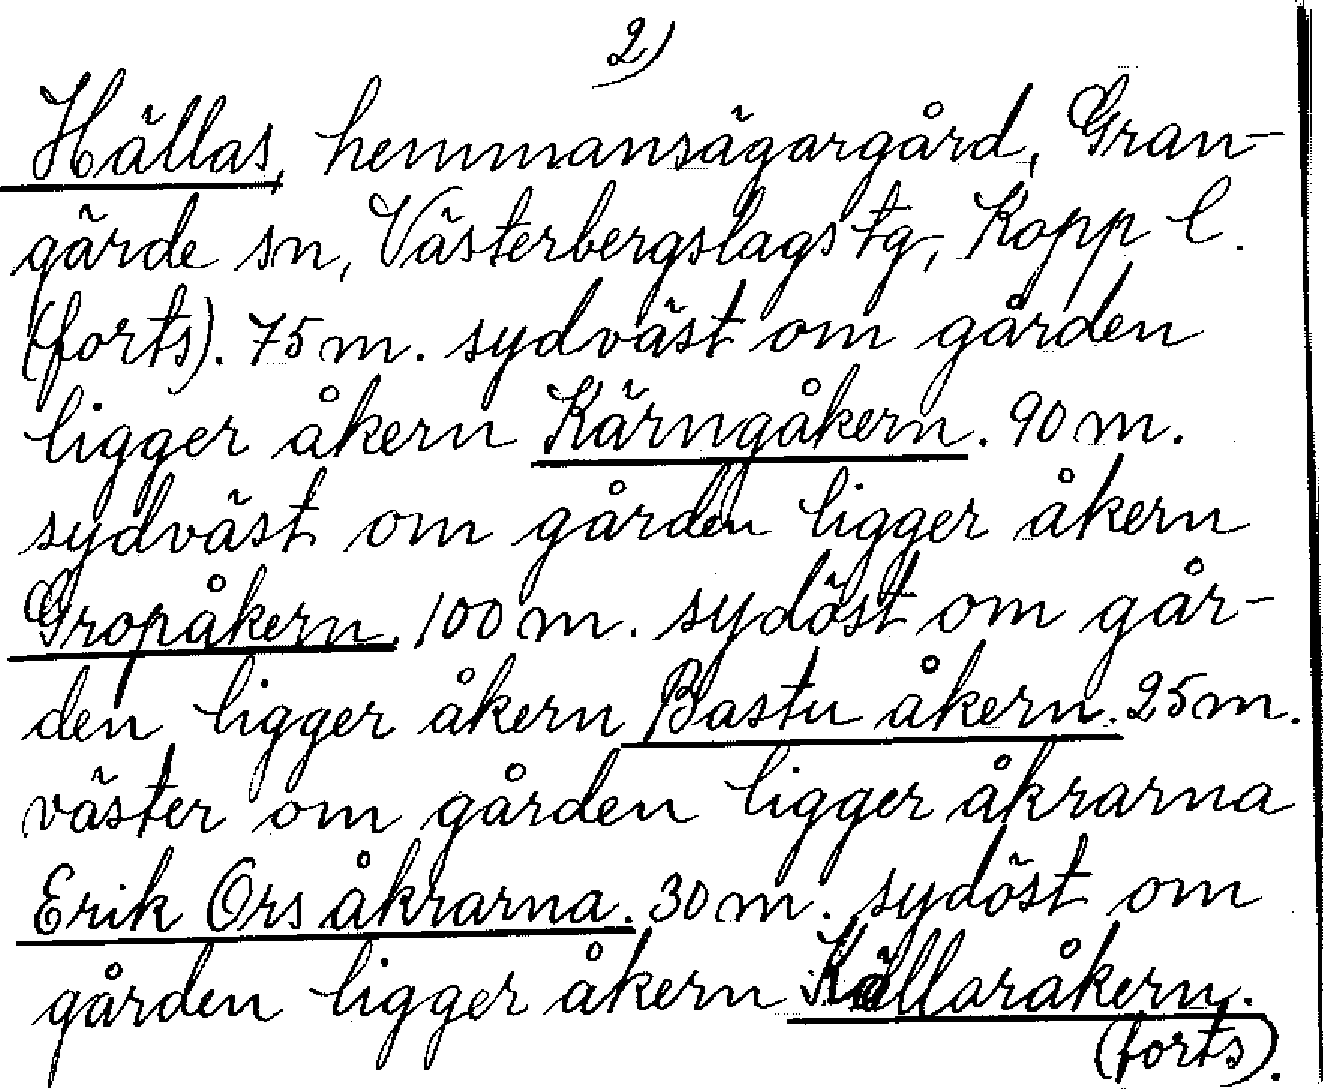 2)
Hällas, hemmansägargård, Gran-
gärde sn, Västerbergslags tg, Kopp l.
(forts). 75 m. sydväst om gården
ligger åkern Kärngåkern. 90 m.
sydväst om gården ligger åkern
Gropåkern. 100 m. sydöst om går-
den ligger åkern Bastu åkern. 25 m.
väster om gården ligger åkrarna
Erik Ors åkrarna. 30 m. sydöst om
gården ligger åkern Källaråkern.
(forts).